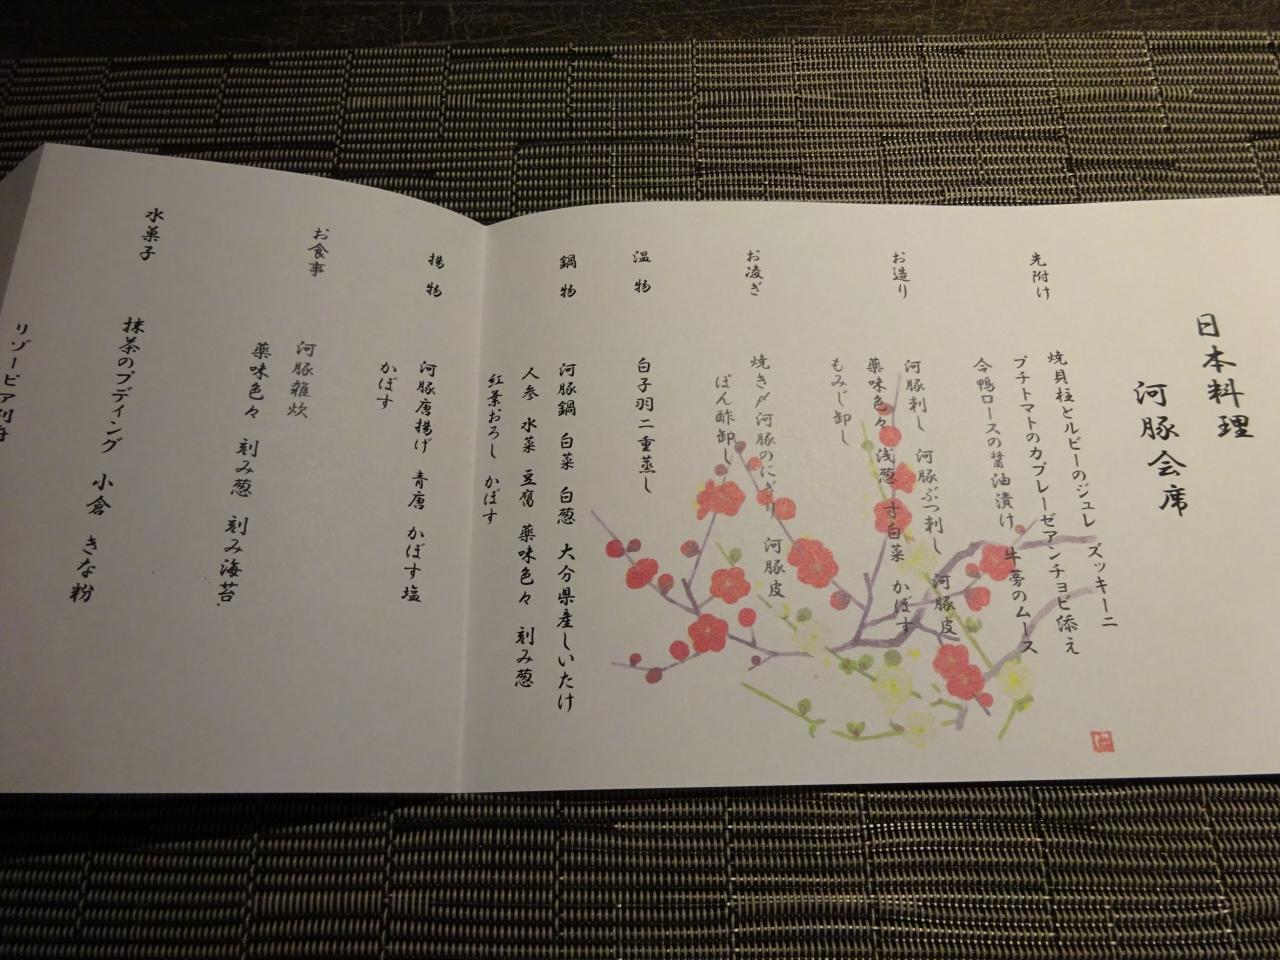 日本料理
河豚会席
先附け
焼貝柱とルビーのジュレ ズッキーニ
プチトマトのカプレーゼアンチョビ添え
合鴨ロースの醤油漬け 牛蒡のムース
お造り
河豚刺し 河豚ぶつ刺し 河豚皮
薬味色々 浅葱 寸白菜 かぼす
もみじ卸し
お凌ぎ
焼き〆河豚のにぎり 河豚皮
ぽん酢卸し
温物
白子羽二重蒸し
鍋物
河豚鍋 白菜 白葱 大分県産しいたけ
人参 水菜 豆腐 薬味色々 刻み葱
紅葉おろし かぼす
揚物
河豚唐揚げ 青唐 かぼす塩
かぼす
お食事
河豚雑炊
薬味色々 刻み葱 刻み海苔
水菓子
抹茶のプディング 小倉 きな粉
リゾーピア別府